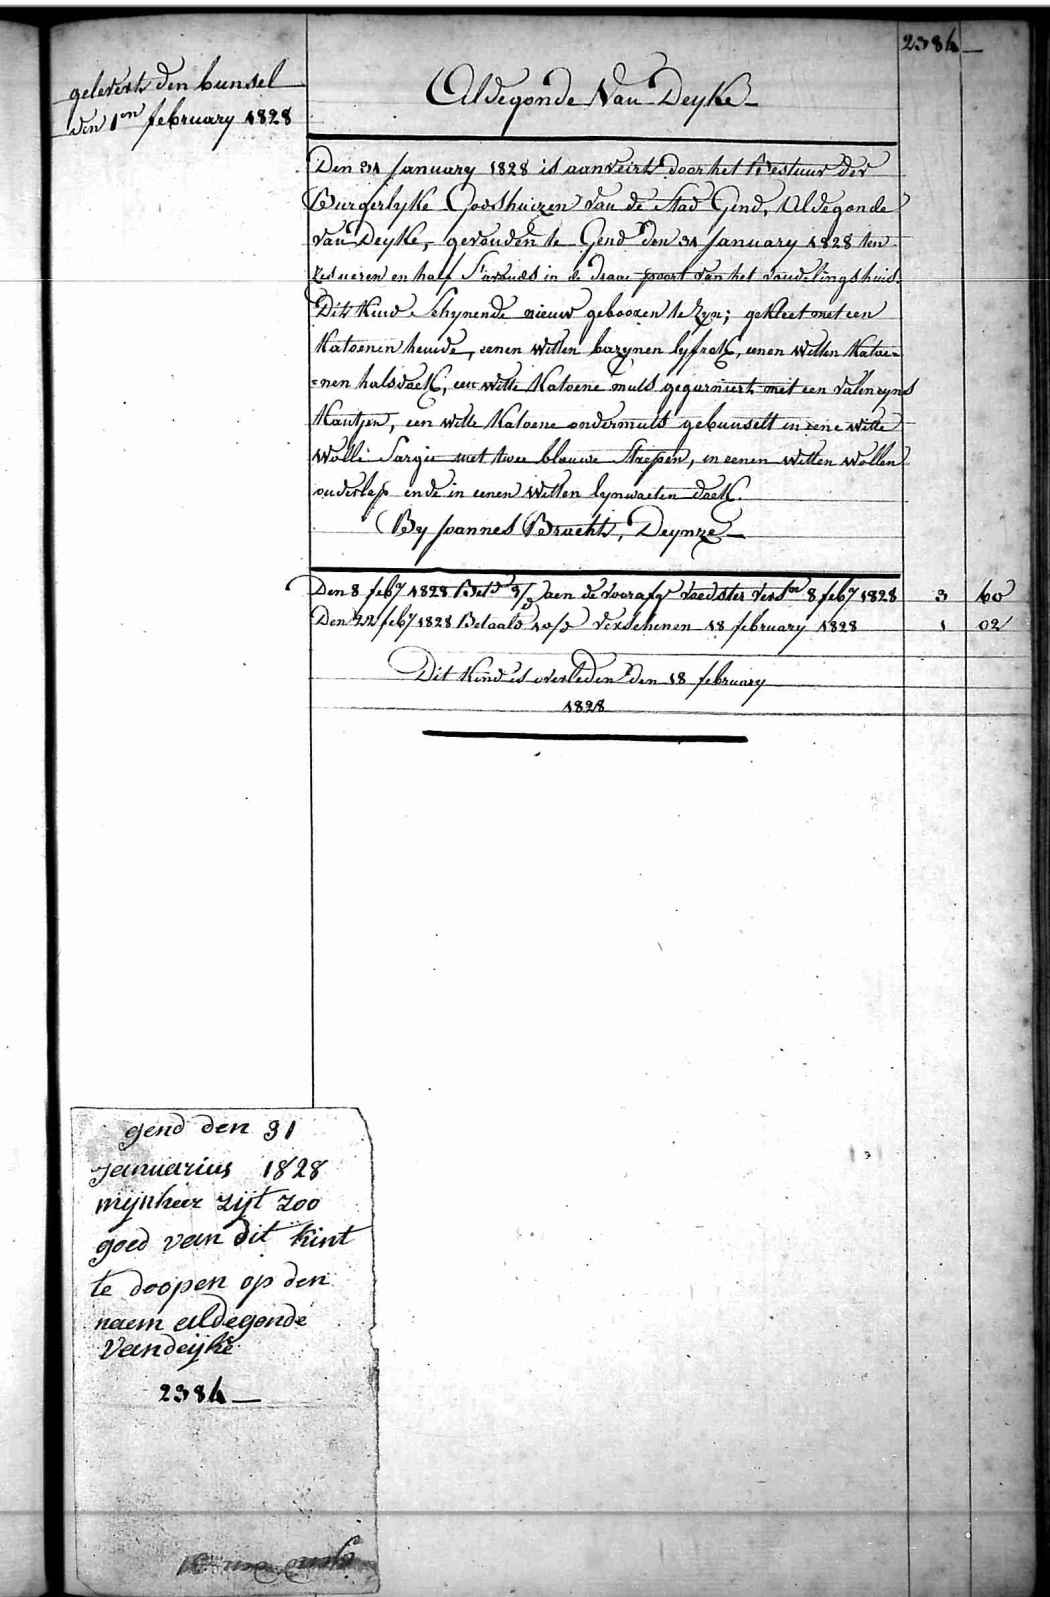 2384
gelevert den bunsel
den 1en february 1828
Aldegonde Van Deyke
Den 31 January 1828 is aanveirt door het Bestuur der
Burgerlyke Godshuizen van de Stad Gend, Aldegonde
van Deyke, gevonden te Gend den 31 January 1828 ten
zes ueren en half S'avonds in de draai poort van het vondelingshuis.
Dit Kind Schynende nieuw gebooren te zyn; gekleet met een
Katoenen hemde, eenen witten bazynen lyfrok, eenen witten Katoe=
=nen halsdoek, een witte Katoene muts gegarniert met een valencyns
Kantjen, een witte Katoene ondermuts gebunselt in eene witte
Wolle Sargie met twee blauwe Strepen, in eenen witten wollen
onderlap ende in eenen witten lynwaeten doek.
By Joannes Brachts, Deynze
Den 8 feby 1828 Betd 3/3 aen de voorafg voedster versn 8 feby 1828 3 60
Den 22 feby 1828 Betaald 10/3 verschenen 18 february 1828 1 02
Dit Kind is overleden den 18 february
1828
gend den 31
januarius 1828
mijnheer zijt zoo
goed van dit kint
te doopen op den
naem aldegonde
Vandeijke
2384